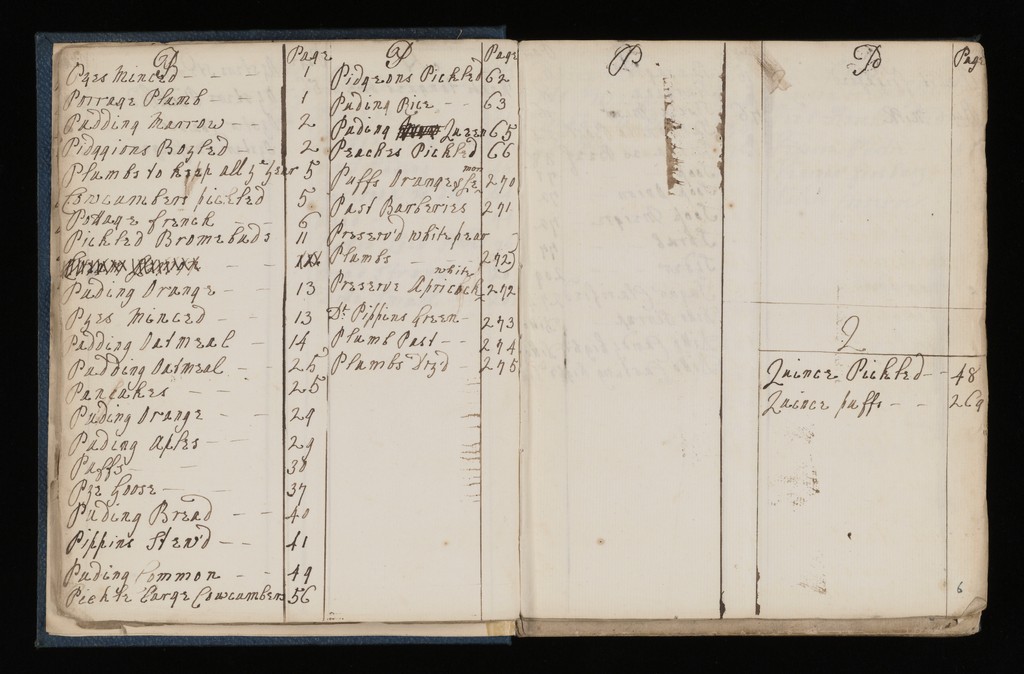 P Page
Pyes Minced 1
Porrage Plumb 1
Pudding Marrow 2
Pidggions Boyled 2
Plumbs to keep all ye year 5
Cowcumbers pickled 5
Pottage french 6
Pickled Bromebuds 11
Pading Orange 13
Pyes Minced 13
Padding Oatmeal 14
Padding Oatmeal 25
Pancakes 25
Pading Orange 29
Pading 29
Puffs 38
Pye Goose 37
Pading Bread 40
Pippins Stew'd 41
Pading Common 49
Pickle Large Cowcumbers 56
P Page
Pidgeons Pickled 62
Pading Rice 63
Pading Queen 65
Peaches Pickled 66
Puffs Orange & Lemon 270
Past Barberies 271
Preserv'd white pear
Plumbs 272
Preserve Apricock white 272
Dt. Pippins Green 273
Plumb Past 274
Plumbs dryd 275
P
P Page
Q
Quince Pickled 48
Quince puffs 269
6